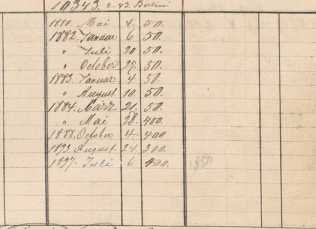 10343 2.-23. Boeui
1880. Mai 4. 50.
1882. Januar 6. 50
" Juli 20 50
" October 27. 50
1883. Januar 4 50
" August 10. 50
1884. März 21. 50
" Mai 28. 400.
1888. October 4. 400
1893. August 24. 300.
1897. Juli 6 400. 1850